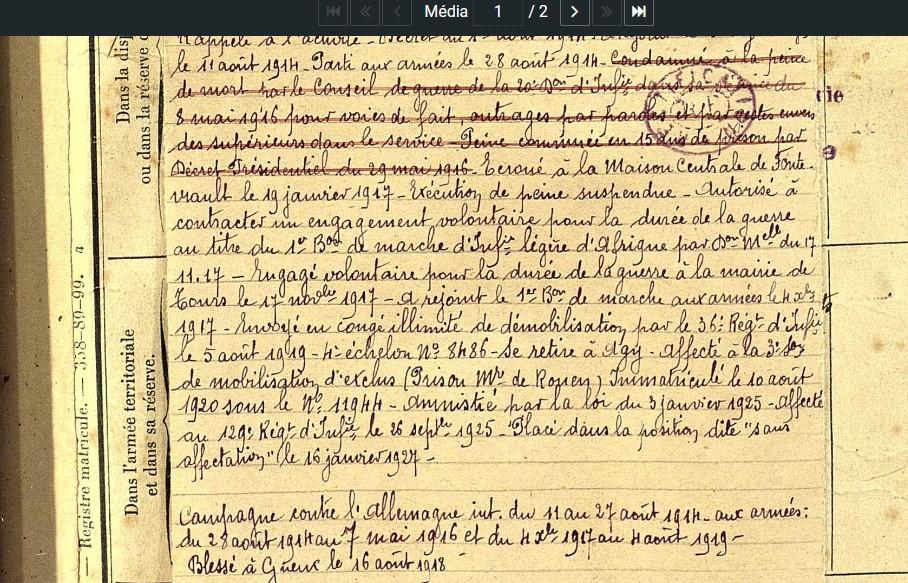 Média 1 / 2
Rappelé à l'activité - Décret du 1er août 1914
le 11 août 1914 - Parti aux armées le 28 août 1914 - Condamné à la peine
de mort par le Conseil de guerre de la 20e Don d'Infie dans sa séance du
8 mai 1916 pour voies de fait, outrages par paroles et par gestes envers
des supérieurs dans le service - Peine commuée en 15 ans de prison par
Décret Présidentiel du 29 mai 1916 - Ecroué à la Maison Centrale de Fonte-
vrault le 19 janvier 1917 - Exécution de peine suspendue - Autorisé à
contracter un engagement volontaire pour la durée de la guerre
au titre du 1er Bon de marche d'Infie légère d'Afrique par Don Melle du 17
11.17 - Engagé volontaire pour la durée de la guerre à la mairie de
Tours le 17 novbre 1917 - A rejoint le 1er Bon de marche aux armées le 4 xbre
1917 - Envoyé en congé illimité de démobilisation par le 36e Régt d'Infie
le 5 août 1919 - 4e échelon No 8486 - Se retire à Agy - Affecté à la 3e Son
de mobilisation d'exclus (Prison Mre de Rouen) Immatriculé le 10 août
1920 sous le No 11944 - Amnistié par la loi du 3 janvier 1925 - Affecté
au 129e Régt d'Infie le 26 septbre 1925 - Placé dans la position dite "sans
affectation" le 16 janvier 1927 -
Campagne contre l'Allemagne int. du 11 au 27 août 1914 - aux armées :
du 28 août 1914 au 7 mai 1916 et du 4 xbre 1917 au 4 août 1919 -
Blessé à Gueux le 16 août 1918
Dans la disp
ou dans la réserve d
Dans l'armée territoriale
et dans sa réserve.
— Registre matricule. — 358-89-99. 4